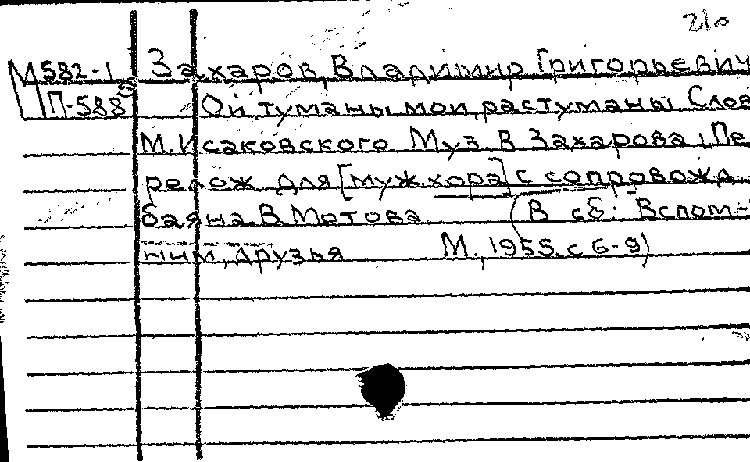 210
М 582-1 Захаров, Владимир Григорьевич
П-588 Ой, туманы мои, растуманы Слов
М. Исаковского Муз В Захарова, Пе-
релож для [муж хора] с сопровожд
баяна В. Мотова (В сб: Вспом-
ним, друзья М., 1955. с 6-9)